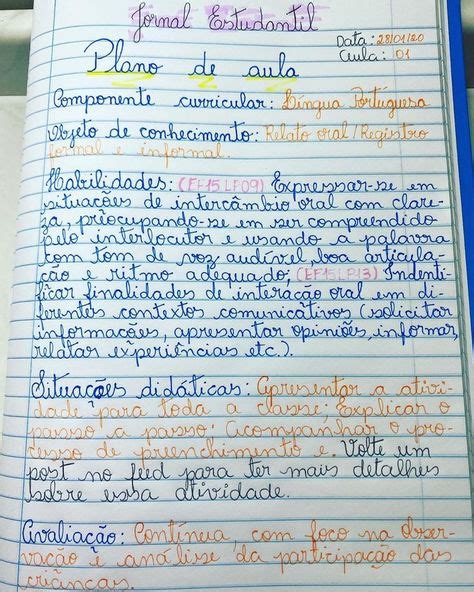 Jornal Estudantil
Data: 28/01/20
Plano de aula
Aula: 01
Componente curricular: Língua Portuguesa
Objeto de conhecimento: Relato oral/Registro
formal e informal.
Habilidades: (EF15LP09) Expressar-se em
situações de intercâmbio oral com clare-
za, preocupando-se em ser compreendido
pelo interlocutor e usando a palavra
com tom de voz audível, boa articula-
ção e ritmo adequado; (EF15LP13) Indenti-
ficar finalidades de interação oral em di-
ferentes contextos comunicativos (solicitar
informações, apresentar opiniões, informar,
relatar experiências etc.).
Situações didáticas: Apresentar a ativi-
dade para toda a classe; Explicar o
passo a passo; Acompanhar o pro-
cesso de preenchimento e. Volte um
post no feed para ter mais detalhes
sobre essa atividade.
Avaliação: Contínua, com foco na obser-
vação e análise da participação das
crianças.